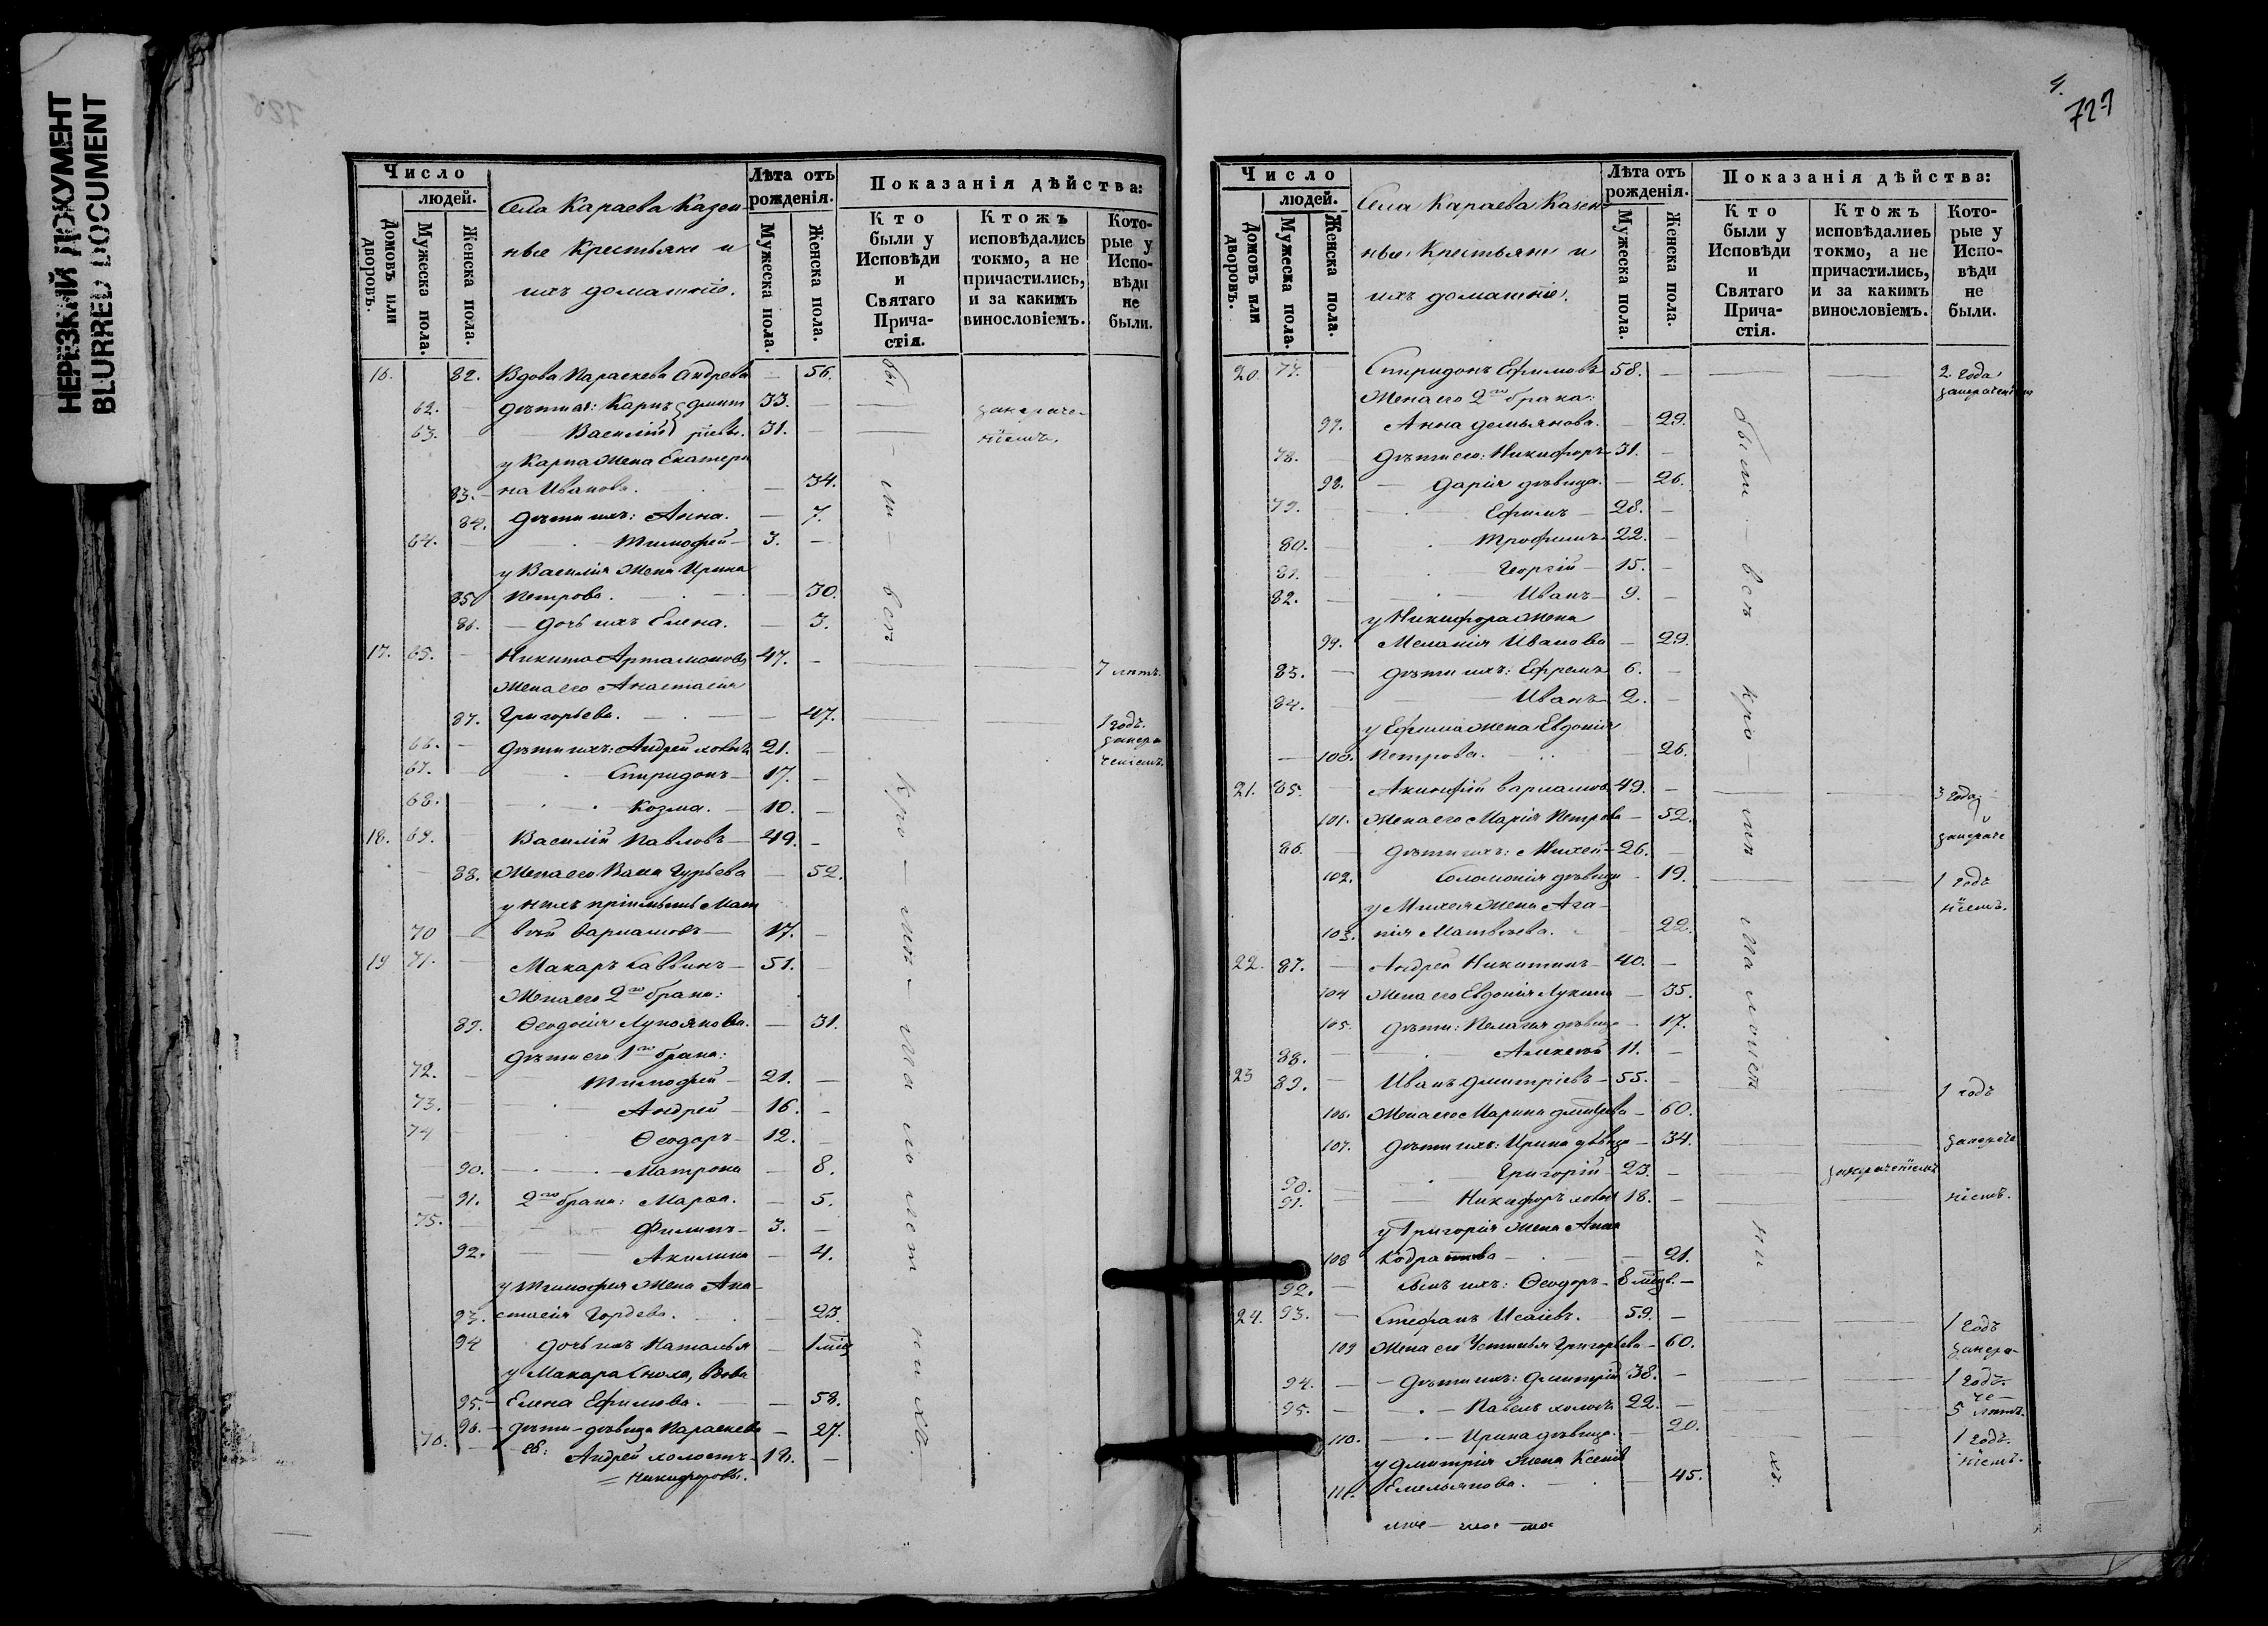 НЕРЕЗКИЙ ДОКУМЕНТ
BLURRED DOCUMENT
Число
людей.
Домовъ или дворовъ.
Мужеска пола.
Женска пола.
Села Караева Казен-
ные Крестьяне и
ихъ домашніе.
Лѣта отъ рожденія.
Мужеска пола.
Женска пола.
Показанія дѣйства:
Кто были у Исповѣди и Святаго Причастія.
Ктожъ исповѣдались токмо, а не причастились, и за какимъ винословіемъ.
Которые у Исповѣди не были.
16. 82. Вдова Параскева Андреева — 56.
62. дѣти ея: Карпъ Дмит 33.
63. Василій ріевы. 31.
у Карпа жена Екатери
83. на Иванова. — 34.
84. дѣти ихъ: Анна. — 7.
64. Тимофей — 3. —
у Василія жена Ирина
85. Петрова. — 30.
86. дочь ихъ Елена. — 3.
17. 65. Никита Артамоновъ 47. — 7 лѣтъ.
жена его Анастасія
87. Григорьева. — 47. 1 годъ.
66. дѣти ихъ: Андрей холостъ 21. —
67. Спиридонъ — 17. —
68. Козма. — 10. —
18. 69. Василій Павловъ — 49. —
88. жена его Васса Гурьева — 52.
у нихъ пріемышъ Мат
70 вѣй Варламовъ — 17. —
19 71. Макаръ Саввинъ — 51. —
жена его 2го брака:
89. Ѳеодосія Лукоянова. — 31.
дѣти его 1го брака:
72. Тимофей — 21. —
73. Андрей — 16. —
74 Ѳеодоръ — 12. —
90. Матрона — 8.
91. 2го брака: Марѳа. — 5.
75. Филипъ — 3. —
92. Акилина — 4.
у Тимофея жена Ана-
93. стасія Гордѣева. — 23.
94 дочь ихъ Наталья — 1 мѣс
у Макара сноха, вдова
95. Елена Ефимова. — 58.
96. дѣти — дѣвица Параскева — 27.
76. ея: Андрей холостъ — 18. —
Никифоровы.
727
Число
людей.
Домовъ или дворовъ.
Мужеска пола.
Женска пола.
Села Караева Казен-
ные Крестьяне и
ихъ домашніе.
Лѣта отъ рожденія.
Мужеска пола.
Женска пола.
Показанія дѣйства:
Кто были у Исповѣди и Святаго Причастія.
Ктожъ исповѣдались токмо, а не причастились, и за какимъ винословіемъ.
Которые у Исповѣди не были.
20. 77. Спиридонъ Ефимовъ 58. — 2 года
жена его 2го брака:
97. Анна Демьянова. — 29.
78. дѣти его: Никифоръ — 31. —
98. Дарія дѣвица. — 26.
79. Ефимъ — 28. —
80. Трофимъ 22. —
81. Георгій — 15. —
82. Иванъ — 9. —
у Никифора жена
99. Меланія Иванова — 29.
83. дѣти ихъ: Ефремъ 6. —
84. Иванъ 2. —
у Ефима жена Евдокія
100. Петрова. — 26.
21. 85. Варламовъ 49. — 3 года
101. жена его Марія Петрова — 52.
86. дѣти ихъ: Михей — 26. —
102. Соломонія дѣвица — 19. 1 годъ
у Михея жена Ага-
103. пія Матвѣева. 22.
22. 87. Андрей Никитинъ — 40. —
104 жена его Евдокія Лукина — 35.
105. дѣти: Пелагія дѣвица — 17.
88. Алексѣй 11. —
23 89. Иванъ Дмитріевъ — 55. — 1 годъ
106. жена его Марина — 60.
107. дѣти ихъ: Ирина дѣвица — 34.
90. Григорій 23. — замраченіемъ
91. Никифоръ холост 18. —
у Григорія жена Анна
108 Кодратова — 21.
92. сынъ ихъ: Ѳеодоръ — 8 мѣсяц. —
24. 93. Стефанъ Исаіевъ. — 59. — 1 годъ
109 жена его Устинья Григорьева — 60.
94. дѣти ихъ: Дмитрій 38. — 1 годъ.
95. Павелъ холостъ 22. — 5 лѣтъ.
110. Ирина дѣвица. — 20. 1 годъ.
у Дмитрія жена Ксенія
111. Емельянова. — 45.